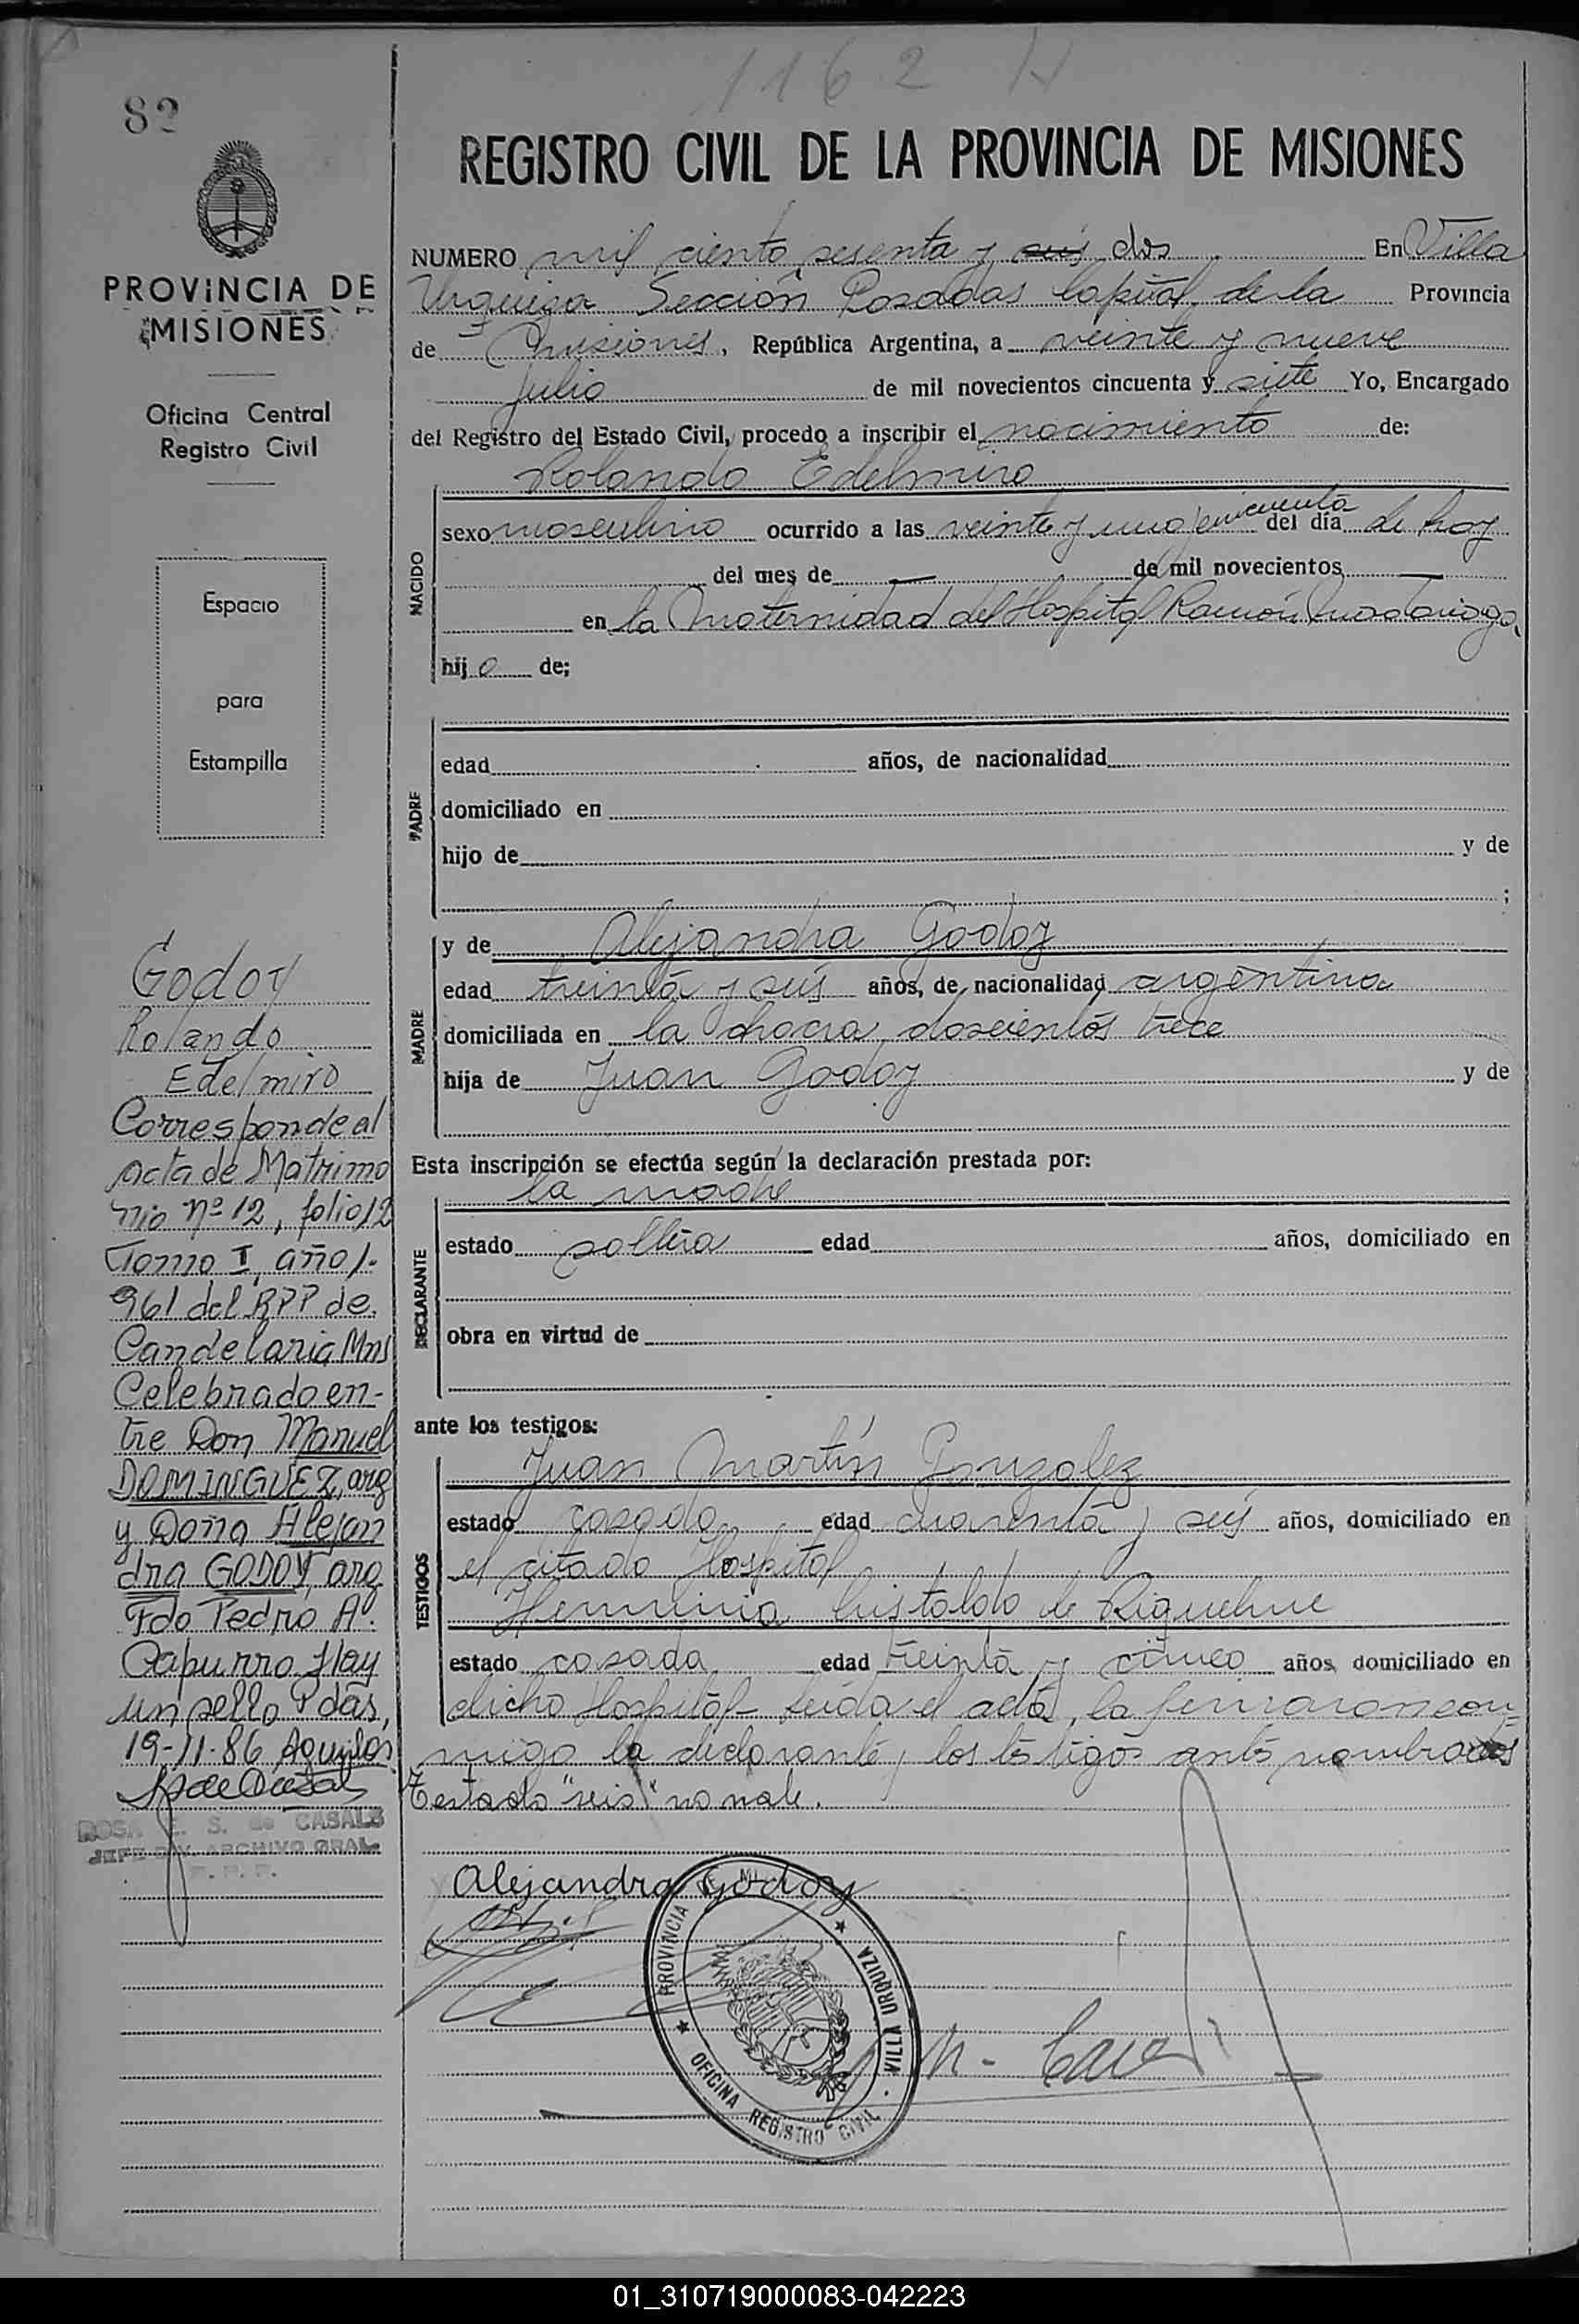 1162
82
REGISTRO CIVIL DE LA PROVINCIA DE MISIONES
PROVINCIA DE
MISIONES
Oficina Central
Registro Civil
Espacio
para
Estampilla
Godoy
Rolando
Edelmiro
Corresponde al
acta de Matrimo
nio nº 12, folio 12
Tomo I, año 1.
961 del RPP de
Candelaria Mns
Celebrado en-
tre Don Manuel
DOMINGUEZ, arg
y Doña Alejan
dra GODOY, arg
Fdo Pedro A.
Capurro Hay
un sello Pdas,
19-11-86
ROSA E. S. de CASALS
JEFE DIV. ARCHIVO GRAL.
R. P. P.
NUMERO mil ciento sesenta y seis dos En Villa
Urquiza Sección Posadas Capital de la Provincia
de Misiones, República Argentina, a veinte y nueve
Julio de mil novecientos cincuenta y siete Yo, Encargado
del Registro del Estado Civil, procedo a inscribir el nacimiento de:
Rolando Edelmiro
NACIDO
sexo masculino ocurrido a las veinte y una y cincuenta del día de hoy
del mes de — de mil novecientos —
en la Maternidad del Hospital Ramón Madariaga,
hijo de;
PADRE
edad años, de nacionalidad
domiciliado en
hijo de y de
;
MADRE
y de Alejandra Godoy
edad treinta y seis años, de nacionalidad argentina
domiciliada en la chacra doscientos trece
hija de Juan Godoy y de
Esta inscripción se efectúa según la declaración prestada por:
la madre
DECLARANTE
estado soltera edad años, domiciliado en
obra en virtud de
ante los testigos:
TESTIGOS
Juan Martín Gonzalez
estado casado edad cuarenta y seis años, domiciliado en
el citado Hospital
Herminia Cristaldo de Riquelme
estado casada edad treinta y cinco años, domiciliado en
dicho Hospital- Leída el acta, la firmaron con-
migo la declarante y los testigos antes nombrados
Testado "seis" no vale.
Alejandra Godoy
PROVINCIA MI
VILLA URQUIZA
OFICINA REGISTRO CIVIL
01_310719000083-042223